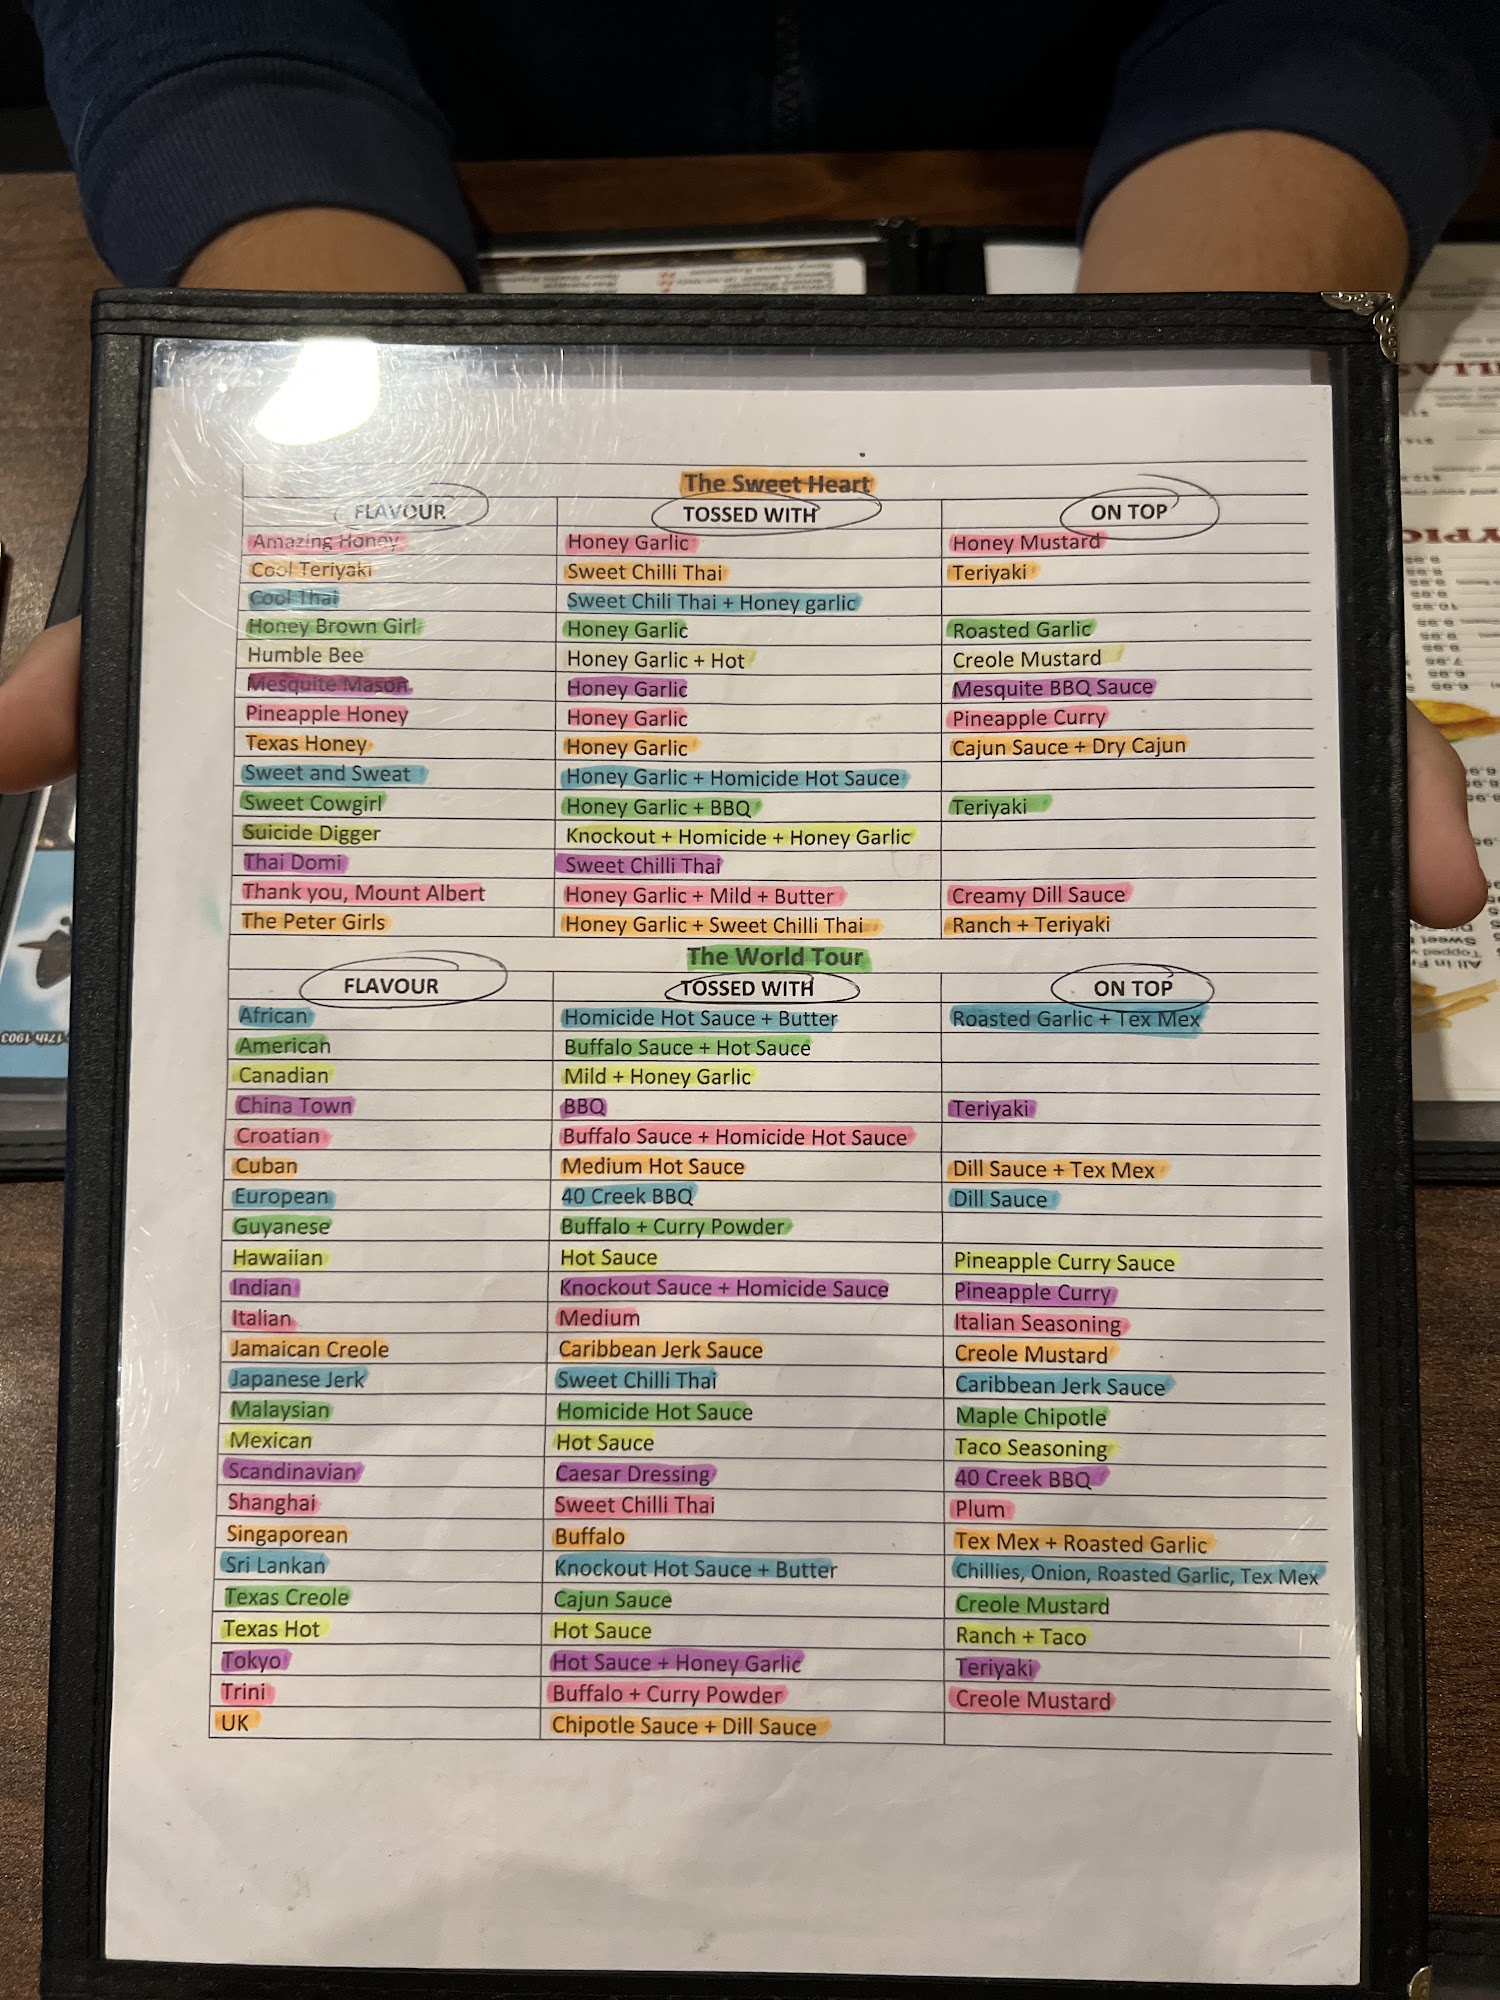 The Sweet Heart
FLAVOUR TOSSED WITH ON TOP
Amazing Honey Honey Garlic Honey Mustard
Cool Teriyaki Sweet Chilli Thai Teriyaki
Cool Thai Sweet Chili Thai + Honey garlic
Honey Brown Girl Honey Garlic Roasted Garlic
Humble Bee Honey Garlic + Hot Creole Mustard
Mesquite Mason Honey Garlic Mesquite BBQ Sauce
Pineapple Honey Honey Garlic Pineapple Curry
Texas Honey Honey Garlic Cajun Sauce + Dry Cajun
Sweet and Sweat Honey Garlic + Homicide Hot Sauce
Sweet Cowgirl Honey Garlic + BBQ Teriyaki
Suicide Digger Knockout + Homicide + Honey Garlic
Thai Domi Sweet Chilli Thai
Thank you, Mount Albert Honey Garlic + Mild + Butter Creamy Dill Sauce
The Peter Girls Honey Garlic + Sweet Chilli Thai Ranch + Teriyaki
The World Tour
FLAVOUR TOSSED WITH ON TOP
African Homicide Hot Sauce + Butter Roasted Garlic + Tex Mex
American Buffalo Sauce + Hot Sauce
Canadian Mild + Honey Garlic
China Town BBQ Teriyaki
Croatian Buffalo Sauce + Homicide Hot Sauce
Cuban Medium Hot Sauce Dill Sauce + Tex Mex
European 40 Creek BBQ Dill Sauce
Guyanese Buffalo + Curry Powder
Hawaiian Hot Sauce Pineapple Curry Sauce
Indian Knockout Sauce + Homicide Sauce Pineapple Curry
Italian Medium Italian Seasoning
Jamaican Creole Caribbean Jerk Sauce Creole Mustard
Japanese Jerk Sweet Chilli Thai Caribbean Jerk Sauce
Malaysian Homicide Hot Sauce Maple Chipotle
Mexican Hot Sauce Taco Seasoning
Scandinavian Caesar Dressing 40 Creek BBQ
Shanghai Sweet Chilli Thai Plum
Singaporean Buffalo Tex Mex + Roasted Garlic
Sri Lankan Knockout Hot Sauce + Butter Chillies, Onion, Roasted Garlic, Tex Mex
Texas Creole Cajun Sauce Creole Mustard
Texas Hot Hot Sauce Ranch + Taco
Tokyo Hot Sauce + Honey Garlic Teriyaki
Trini Buffalo + Curry Powder Creole Mustard
UK Chipotle Sauce + Dill Sauce